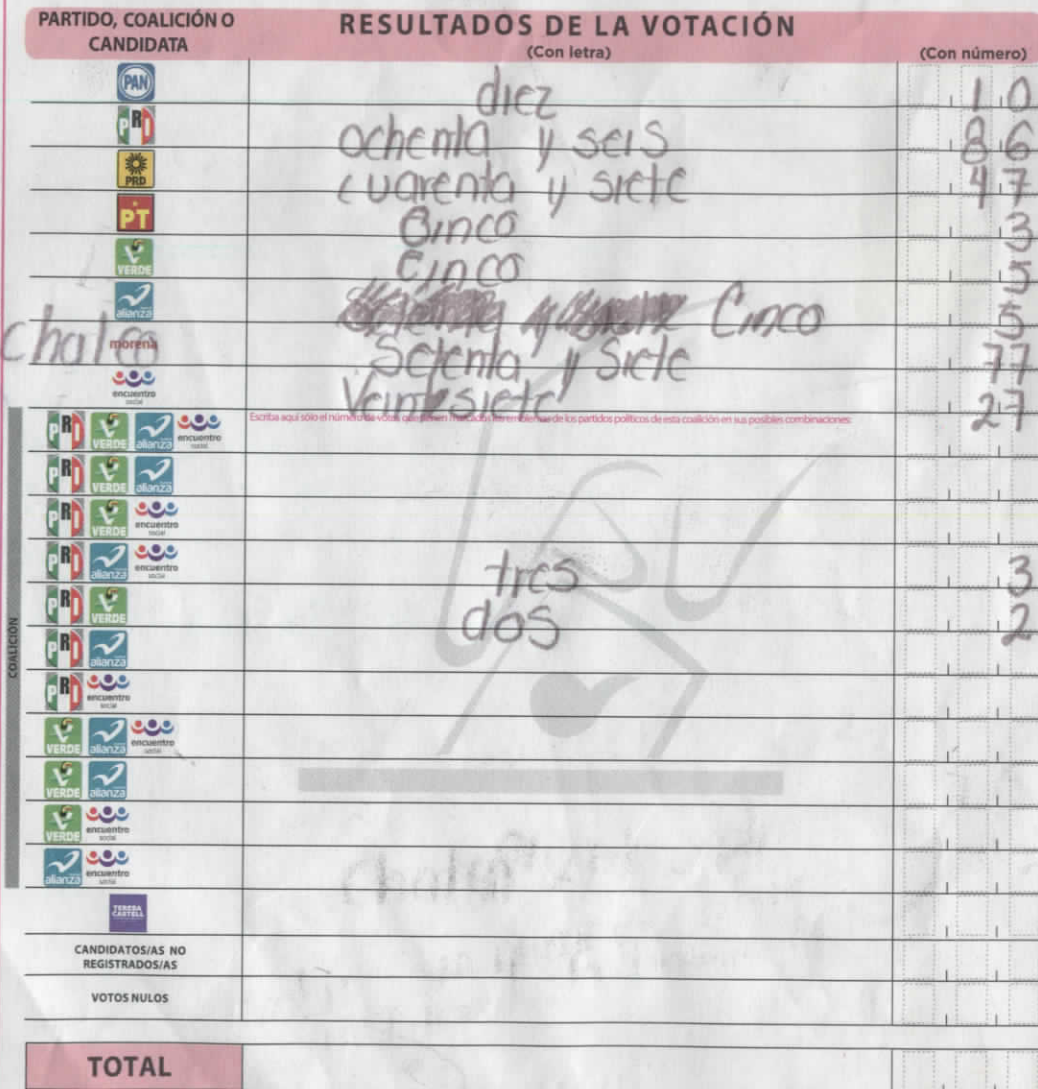 PARTIDO, COALICIÓN O CANDIDATA RESULTADOS DE LA VOTACIÓN (Con letra) (Con número)
PAN diez 10
PRI ochenta y seis 86
PRD cuarenta y siete 47
PT Cinco 3
VERDE cinco 5
alianza Cinco 5
Chalco morena Setenta y Siete 77
encuentro social Veintesiete 27
PRI VERDE alianza encuentro social Escriba aquí sólo el número de votos que tienen marcados los emblemas de los partidos políticos de esta coalición en sus posibles combinaciones:
PRI VERDE alianza
PRI VERDE encuentro social
PRI alianza encuentro social tres 3
PRI VERDE dos 2
PRI alianza
PRI encuentro social
VERDE alianza encuentro social
VERDE alianza
VERDE encuentro social
alianza encuentro social
COALICIÓN
TERESA CASTELL
CANDIDATOS/AS NO REGISTRADOS/AS
VOTOS NULOS
TOTAL